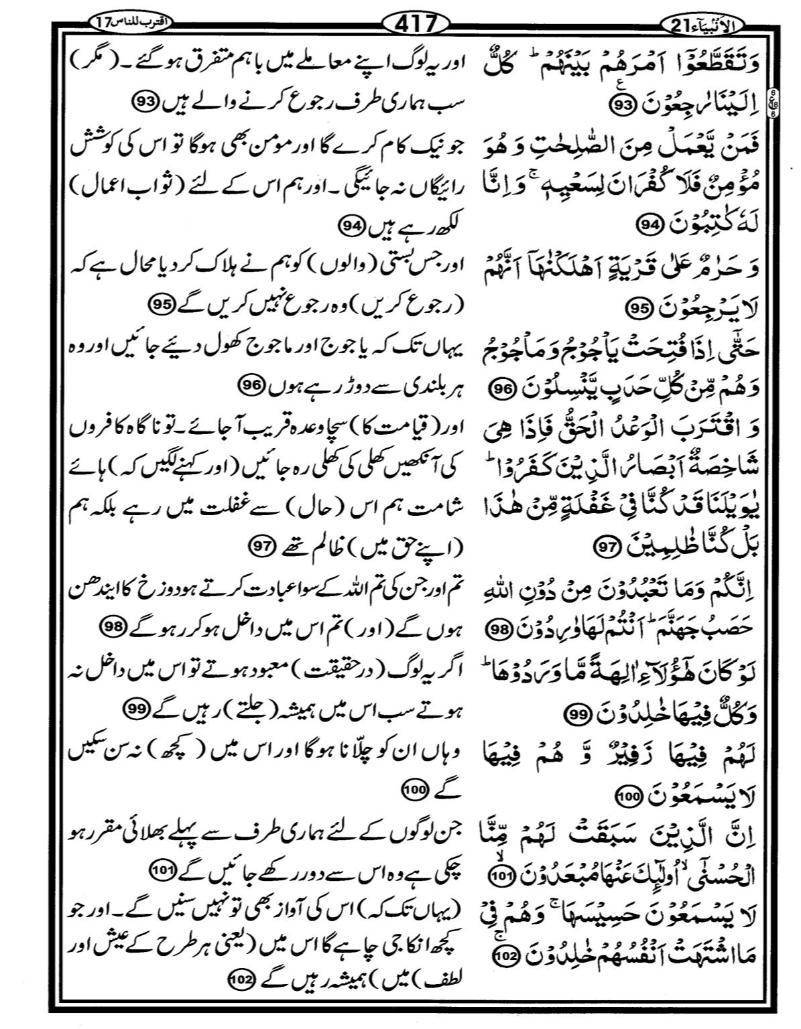 الانبیآء 21
417
اقترب للناس 17
وَتَقَطَّعُوۡۤا اَمۡرَهُمۡ بَيۡنَهُمۡ ؕ كُلٌّ
اِلَيۡنَا رٰجِعُوۡنَ 93
فَمَنۡ يَّعۡمَلۡ مِنَ الصّٰلِحٰتِ وَ هُوَ
مُؤۡمِنٌ فَلَا كُفۡرَانَ لِسَعۡيِهٖ ۚ وَاِنَّا
لَهٗ كٰتِبُوۡنَ 94
وَ حَرٰمٌ عَلٰى قَرۡيَةٍ اَهۡلَكۡنٰهَاۤ اَنَّهُمۡ
لَا يَرۡجِعُوۡنَ 95
حَتّٰٓى اِذَا فُتِحَتۡ يَاۡجُوۡجُ وَ مَاۡجُوۡجُ
وَهُمۡ مِّنۡ كُلِّ حَدَبٍ يَّنۡسِلُوۡنَ 96
وَ اقۡتَرَبَ الۡوَعۡدُ الۡحَقُّ فَاِذَا هِىَ
شَاخِصَةٌ اَبۡصَارُ الَّذِيۡنَ كَفَرُوۡا ؕ
يٰوَيۡلَنَا قَدۡ كُنَّا فِىۡ غَفۡلَةٍ مِّنۡ هٰذَا
بَلۡ كُنَّا ظٰلِمِيۡنَ 97
اِنَّكُمۡ وَمَا تَعۡبُدُوۡنَ مِنۡ دُوۡنِ اللّٰهِ
حَصَبُ جَهَنَّمَ ؕ اَنۡتُمۡ لَهَا وٰرِدُوۡنَ 98
لَوۡ كَانَ هٰٓؤُلَاۤءِ اٰلِهَةً مَّا وَرَدُوۡهَا ؕ
وَكُلٌّ فِيۡهَا خٰلِدُوۡنَ 99
لَهُمۡ فِيۡهَا زَفِيۡرٌ وَّ هُمۡ فِيۡهَا
لَا يَسۡمَعُوۡنَ 100
اِنَّ الَّذِيۡنَ سَبَقَتۡ لَهُمۡ مِّنَّا
الۡحُسۡنٰٓى ۙ اُولٰٓئِكَ عَنۡهَا مُبۡعَدُوۡنَ ۙ 101
لَا يَسۡمَعُوۡنَ حَسِيۡسَهَا ۚ وَهُمۡ فِىۡ
مَا اشۡتَهَتۡ اَنۡفُسُهُمۡ خٰلِدُوۡنَ ۚ 102
اور یہ لوگ اپنے معاملے میں باہم متفرق ہو گئے۔ (مگر)
سب ہماری طرف رجوع کرنے والے ہیں 93
جو نیک کام کرے گا اور مومن بھی ہوگا تو اس کی کوشش
رائیگاں نہ جائیگی۔ اور ہم اس کے لئے (ثواب اعمال)
لکھ رہے ہیں 94
اور جس بستی (والوں) کو ہم نے ہلاک کر دیا محال ہے کہ
(رجوع کریں) وہ رجوع نہیں کریں گے 95
یہاں تک کہ یاجوج اور ماجوج کھول دیئے جائیں اور وہ
ہر بلندی سے دوڑ رہے ہوں 96
اور (قیامت کا) سچا وعدہ قریب آ جائے۔ تو ناگاہ کافروں
کی آنکھیں کھلی کی کھلی رہ جائیں (اور کہنے لگیں کہ) ہائے
شامت ہم اس (حال) سے غفلت میں رہے بلکہ ہم
(اپنے حق میں) ظالم تھے 97
تم اور جن کی تم اللہ کے سوا عبادت کرتے ہو دوزخ کا ایندھن
ہوں گے (اور) تم اس میں داخل ہو کر رہو گے 98
اگر یہ لوگ (درحقیقت) معبود ہوتے تو اس میں داخل نہ
ہوتے سب اس میں ہمیشہ (جلتے) رہیں گے 99
وہاں ان کو چلّانا ہوگا اور اس میں (کچھ) نہ سن سکیں
گے 100
جن لوگوں کے لئے ہماری طرف سے پہلے بھلائی مقرر ہو
چکی ہے وہ اس سے دور رکھے جائیں گے 101
(یہاں تک کہ) اس کی آواز بھی تو نہیں سنیں گے۔ اور جو
کچھ انکا جی چاہے گا اس میں (یعنی ہر طرح کے عیش اور
لطف) میں) ہمیشہ رہیں گے 102